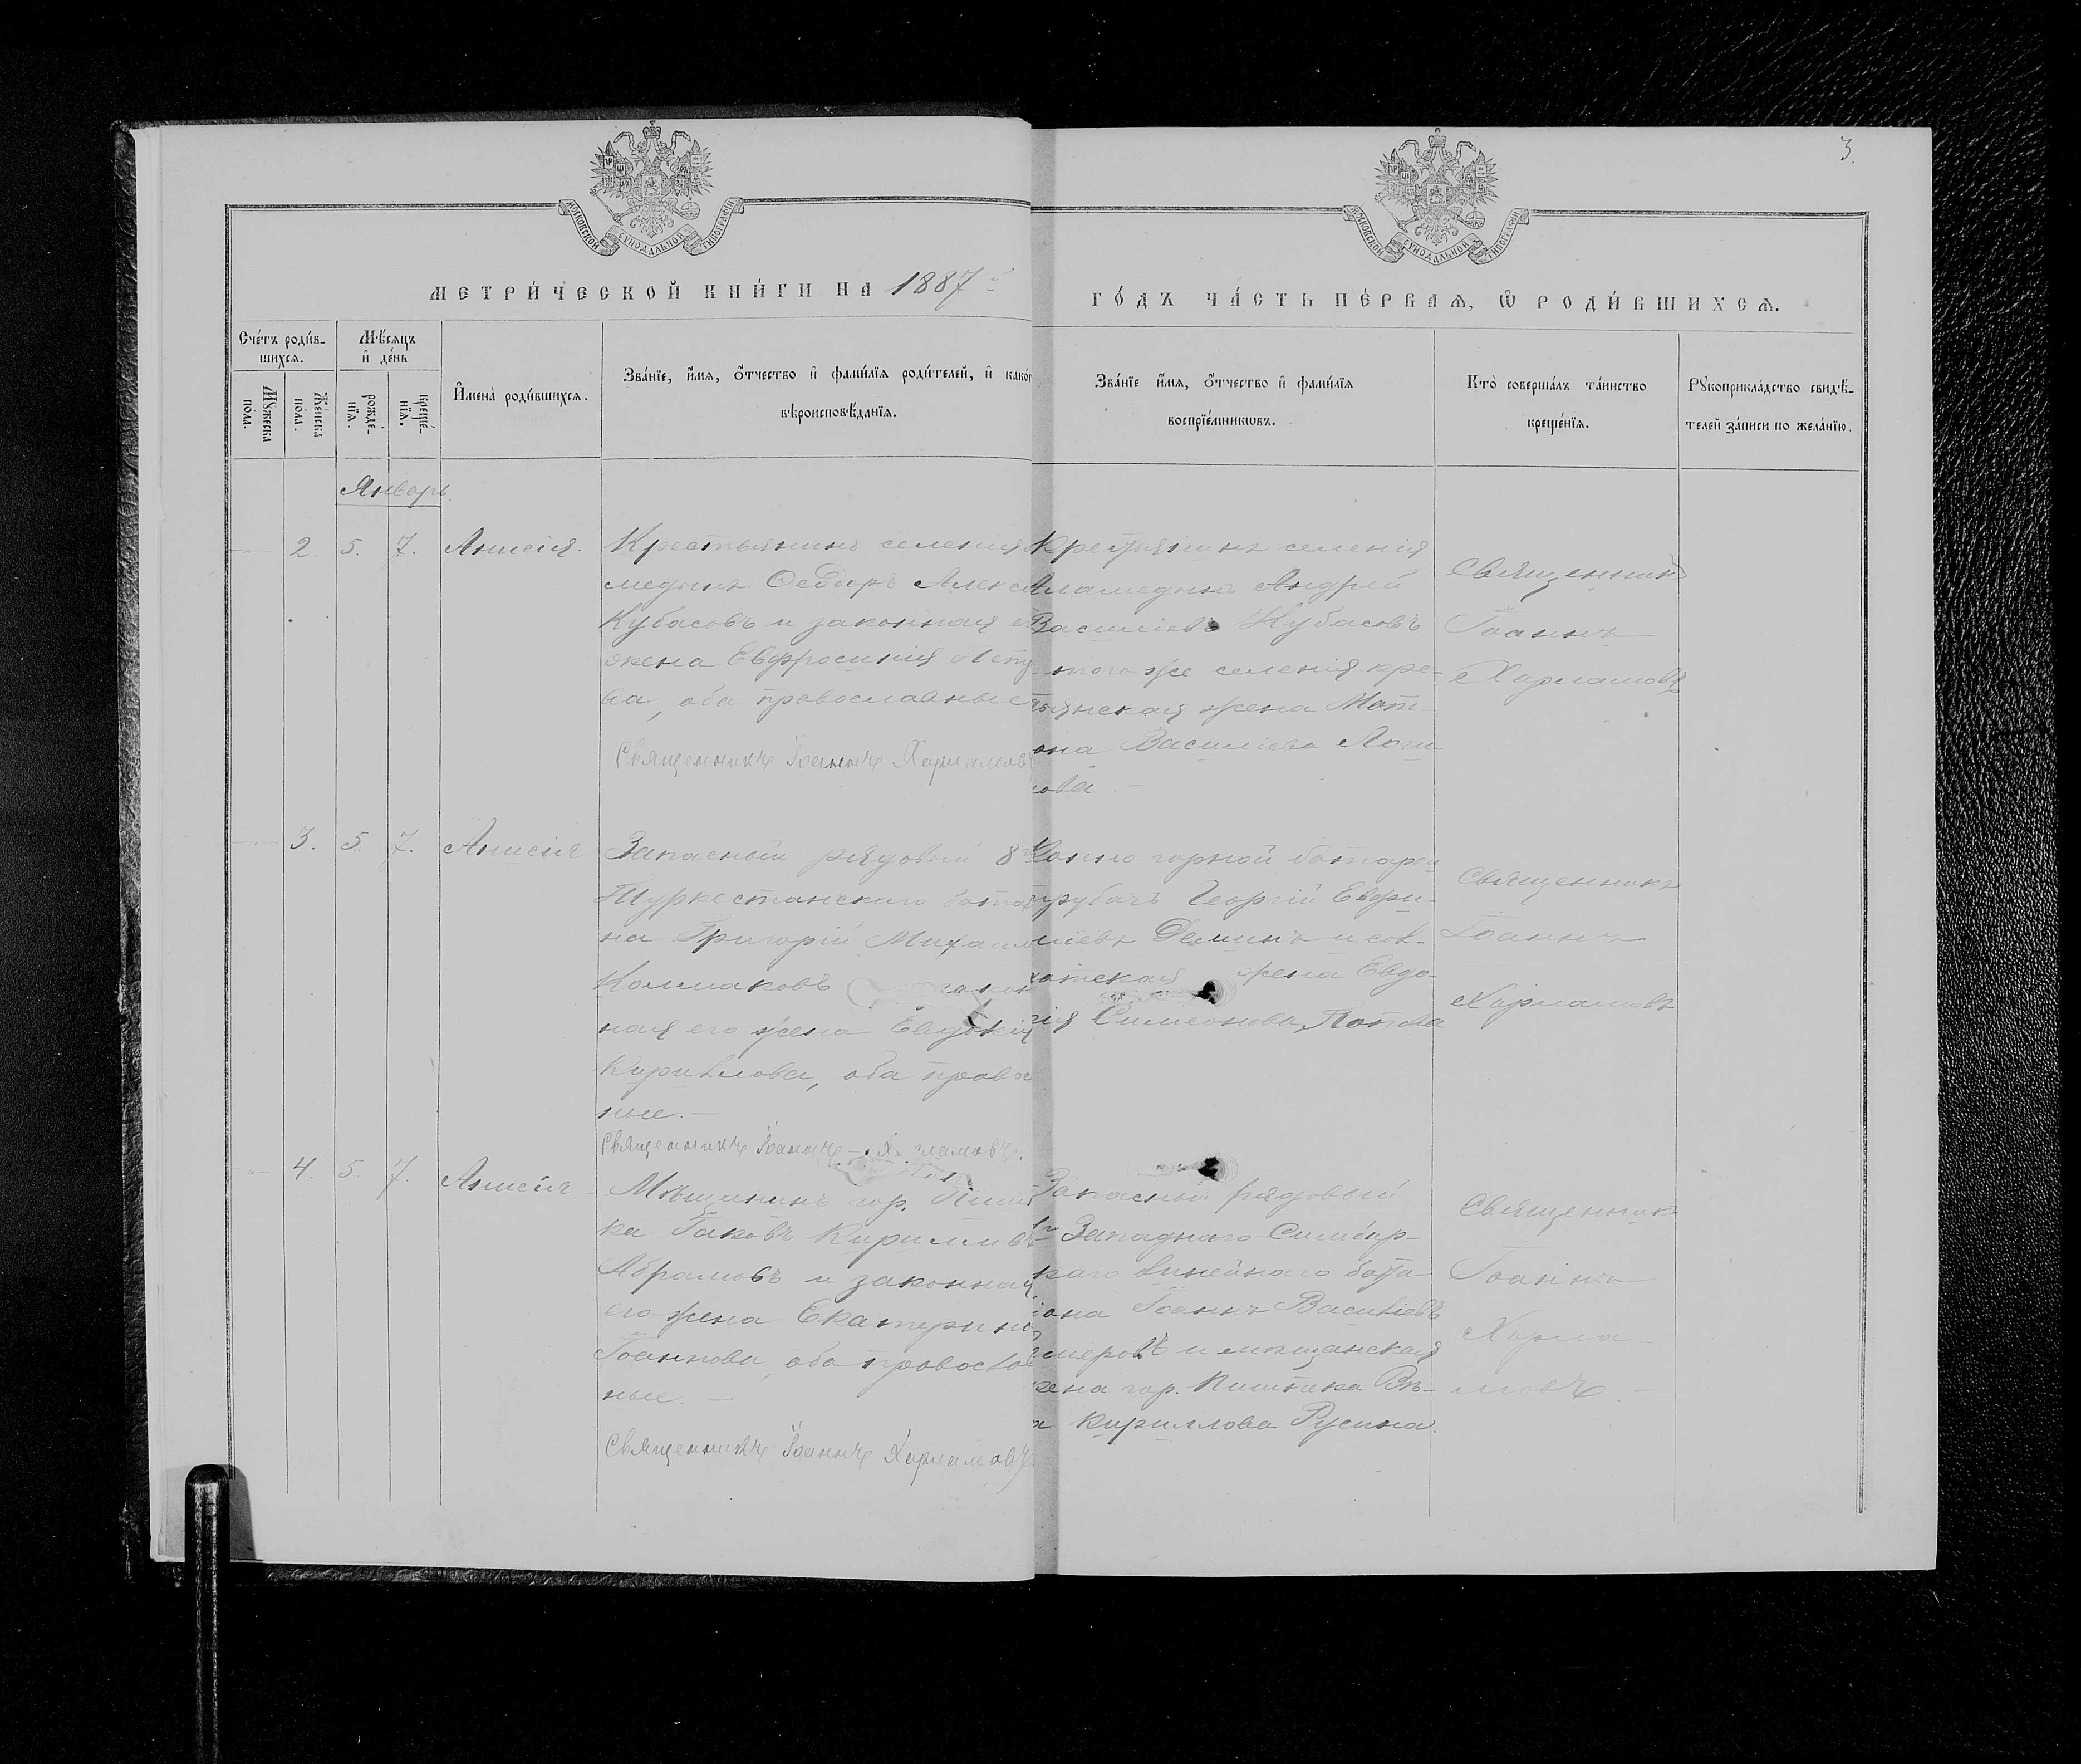 3.
МОСКОВСКОЙ СУНОДАЛЬНОЙ ТИПОГРАФІИ
МОСКОВСКОЙ СУНОДАЛЬНОЙ ТИПОГРАФІИ
МЕТРИ́ЧЕСКОЙ КНИ́ГИ НА 1887й
ГО́ДЪ ЧА́СТЬ ПЕ́РВАѦ, Ѡ РОДИ́ВШИХСѦ.
Сче́тъ роди́в-
шихсѧ.
Мꙋжеска по́ла.
Же́нска по́ла.
Мѣ́сѧцъ
и҆ де́нь
рожде́-
нїѧ.
креще́-
нїѧ.
И҆мена̀ роди́вшихсѧ.
Зва́нїе, и҆́мѧ, ѻ҆́тчество и҆ фами́лїѧ роди́телей, и҆ како́г
вѣроисповѣ́данїѧ.
Зва́нїе и҆́мѧ, ѻ҆́тчество и҆ фами́лїѧ
воспрїе́мникѡвъ.
Кто̀ соверша́лъ та́инство
креще́нїѧ.
Рꙋкоприкла́дство свидѣ́-
телей за́писи по жела́нїю.
Январь.
2 5. 7. Анисія.
Крестьянинъ селенія
медынъ Ѳеодоръ Алексе
Кубасовъ и законная е
жена Евфросинія Пет
ва, оба православные
Священникъ Іоаннъ Харламов
Крестьянинъ селенія
Аламедынъ Андрей
Василіевъ Кубасовъ
того же селенія кре-
тьянская жена Мат
она Василіева Логи-
нова. —
Священникъ
Іоаннъ
Харламовъ
3. 5 7. Анисія
Запасный рядовой 8го
Туркестанскаго бата
на Григорій Михаил
Колмаковъ закон
ная его жена Евдокія
Кириллова, оба правос
ные. —
Священникъ Іоаннъ Х ламовъ.
Конно горной батареи
трубачъ Георгій Евфи-
міевъ Деминъ и сол-
датская жена Евдо-
кія Симеонова Попова
Священникъ
Іоаннъ
Харламовъ
4. 5 7. Анисія.
Мѣщанинъ гор. Пишп
ка Іаковъ Кирилловъ
Абрамовъ и законная
его жена Екатерина
Іоаннова, оба правосла
ные. —
Священникъ Іоаннъ Харламовъ
Запасный рядовый
1го Западнаго Сибир-
каго Линейнаго бата-
ліона Іоаннъ Василіевъ
меровъ и мѣщанская
жена гор. Пишпека Вѣ-
а Кириллова Русина.
Священникъ
Іоаннъ
Харла-
мовъ —